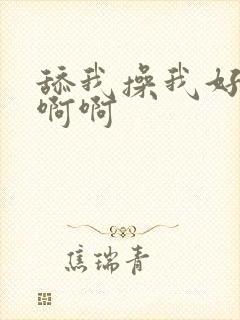 舔我操我好
啊啊
焦瑞青